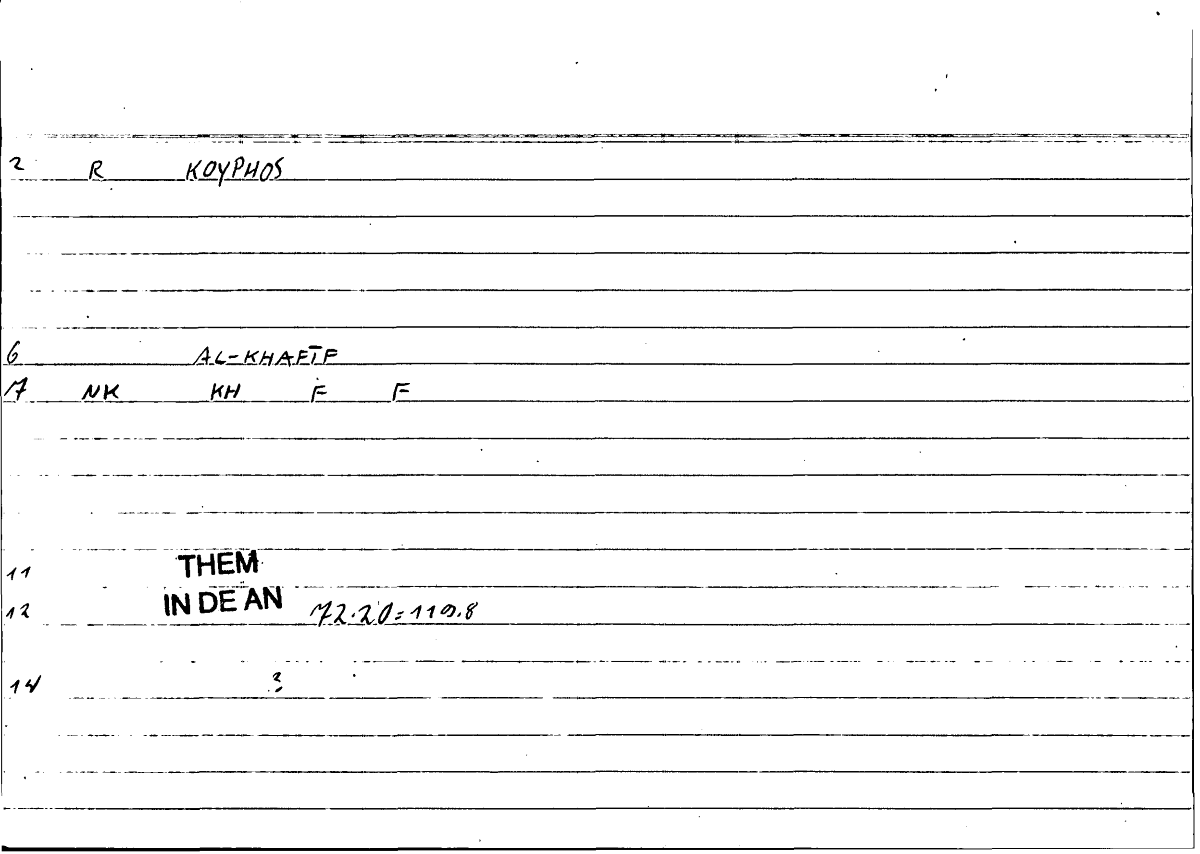 2 R KOYPHOS
6 AL-KHAFĪF
7 NK KH F F
11 THEM
12 IN DE AN 72.20=119.8
14 3